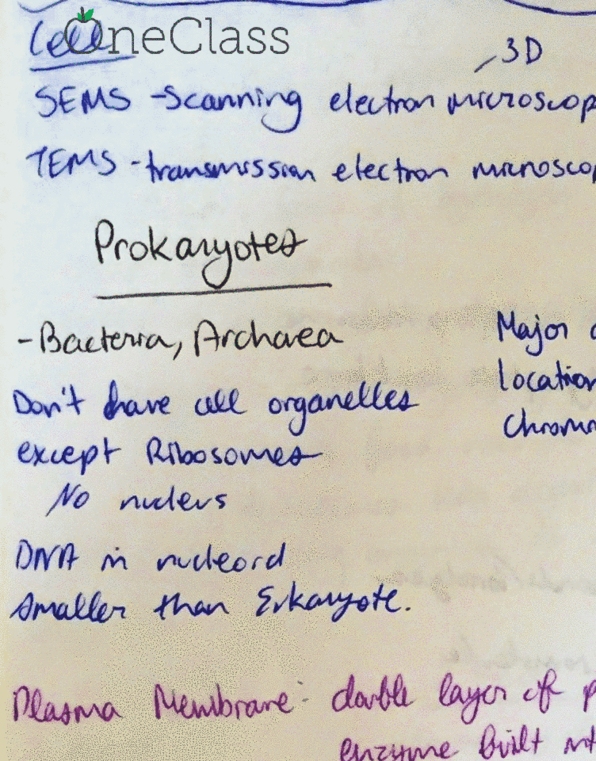 Cell
OneClass
3D
SEMS - Scanning electron microscop
TEMS - transmission electron microscop
Prokaryotes
- Bacteria, Archaea
Major
location
chrom
Don't have all organelles
except Ribosomes
No nucleus
DNA in nucleoid
smaller than Eukaryote.
Plasma Membrane: double layer of p
enzyme built int